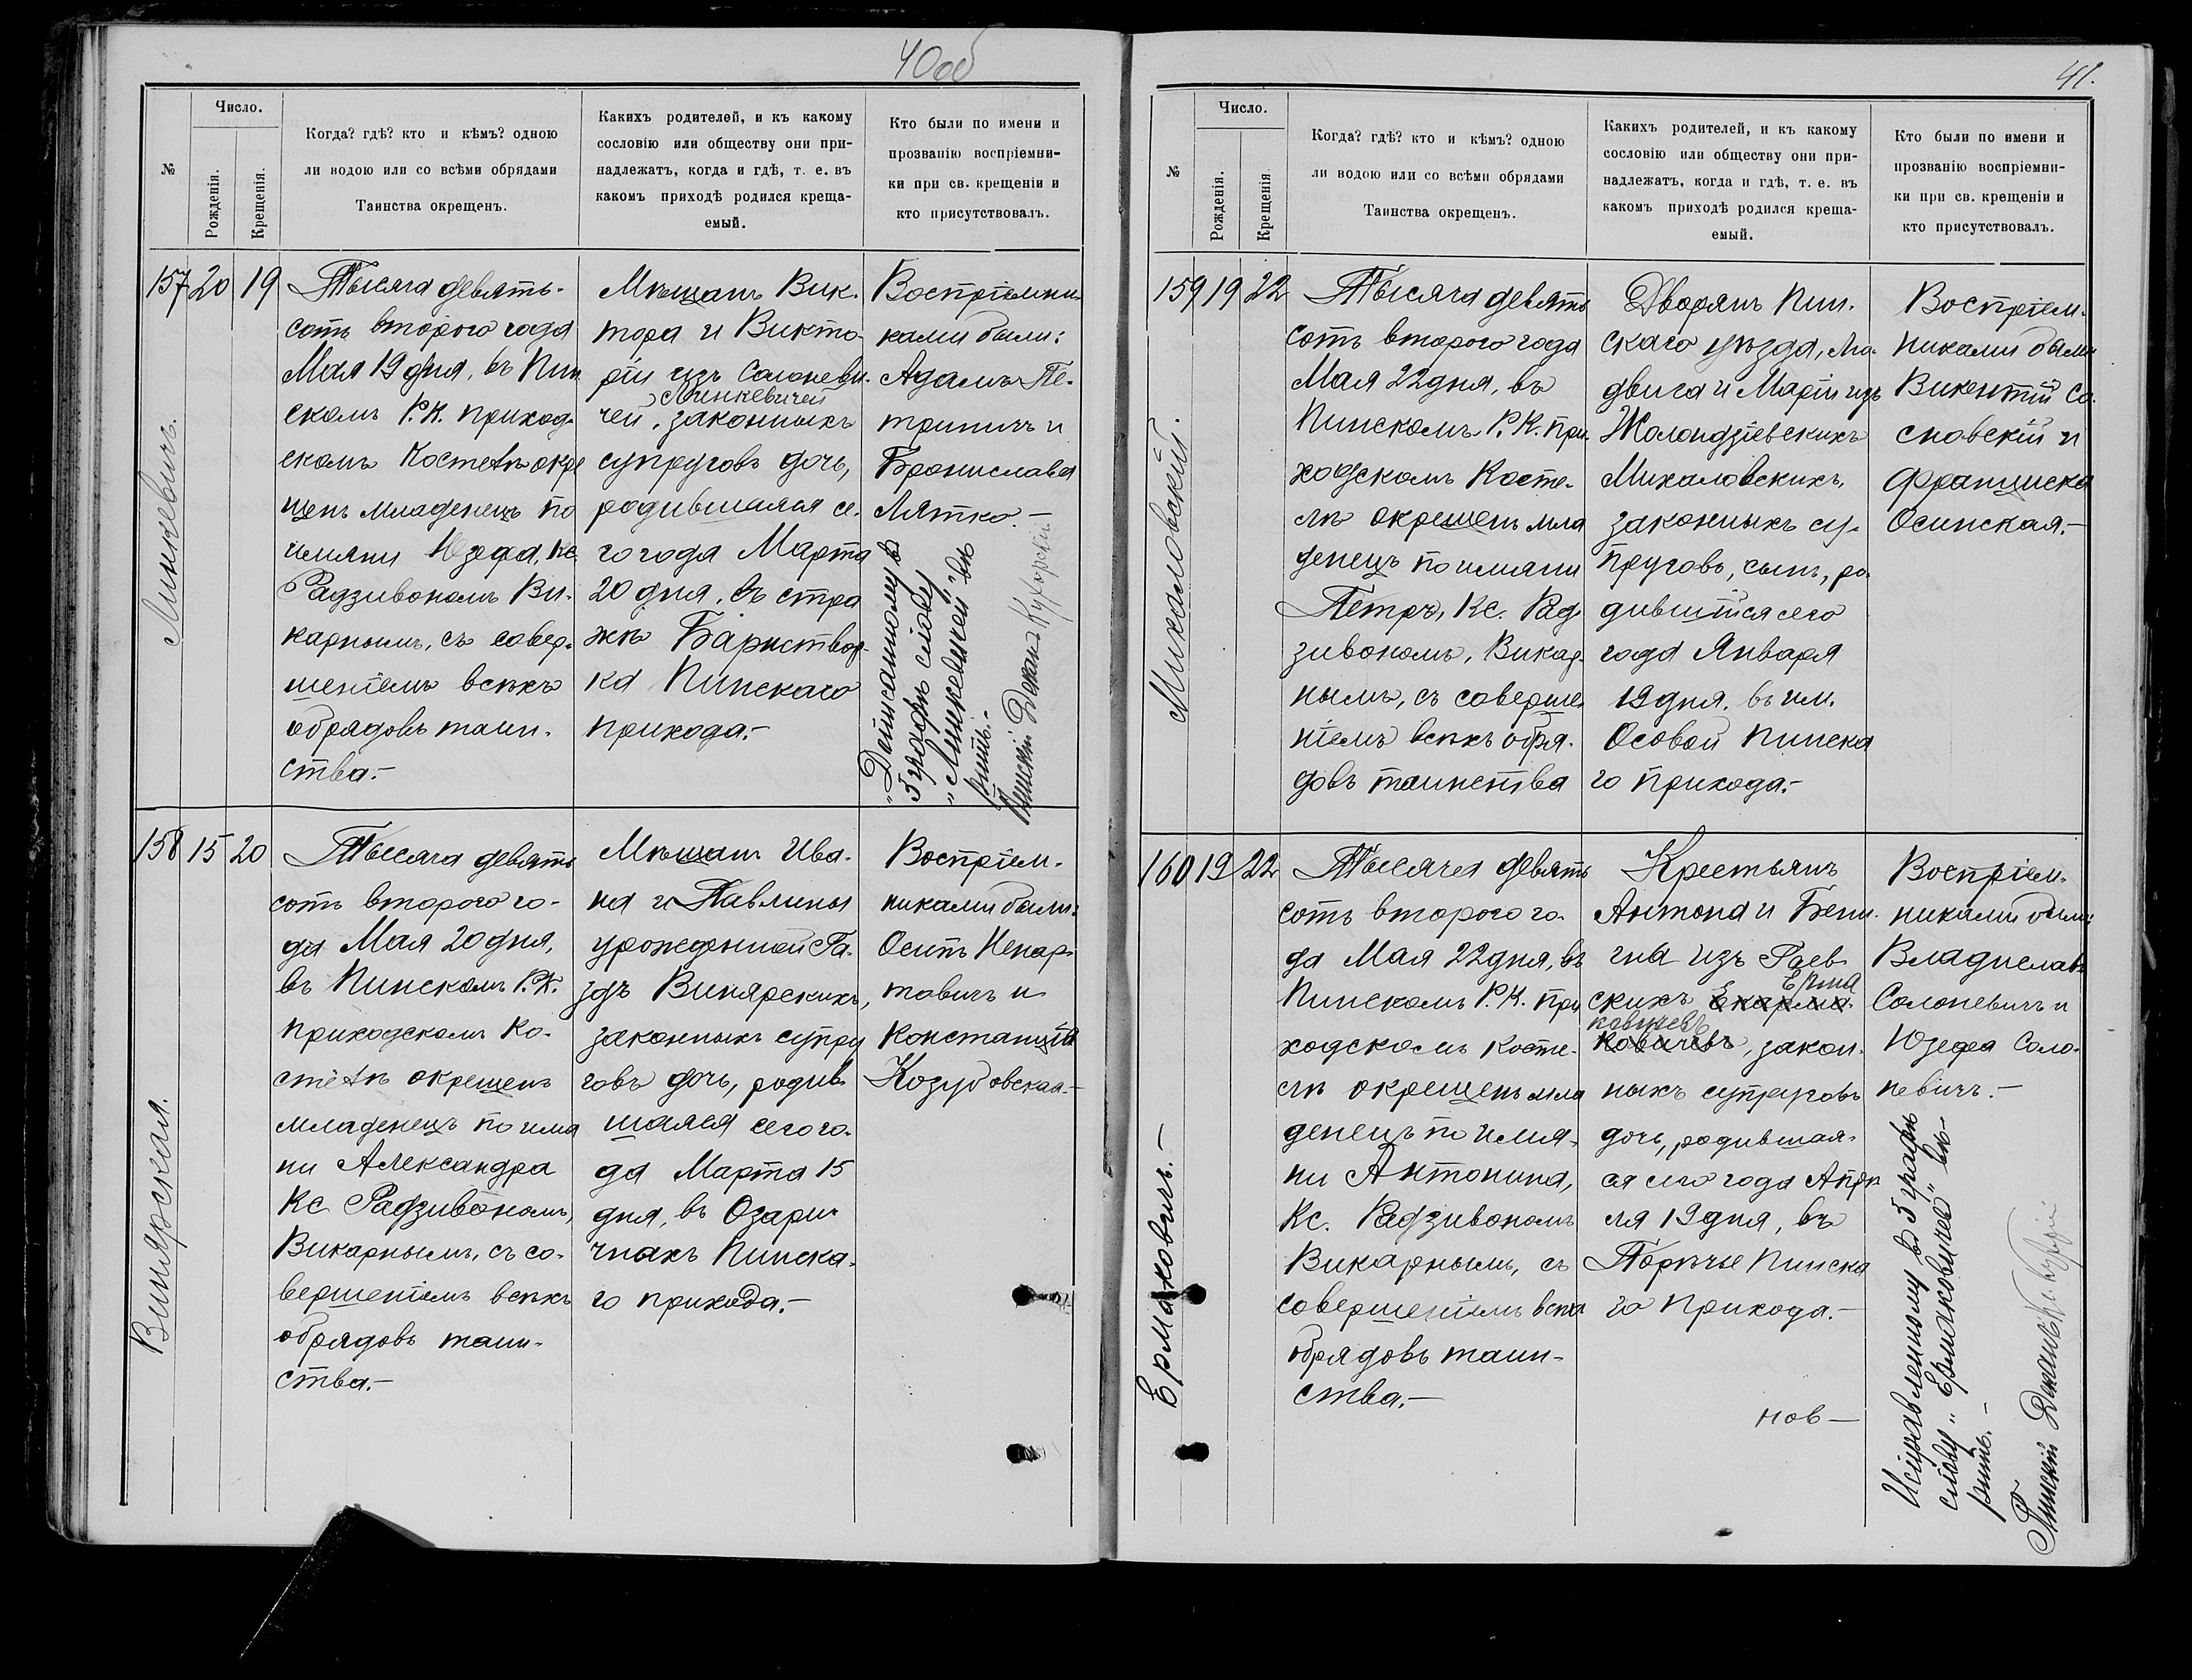 40об
№
Число.
Рожденія.
Крещенія.
Когда? гдѣ? кто и кѣмъ? одною
ли водою или со всѣми обрядами
Таинства окрещенъ.
Какихъ родителей, и къ какому
сословію или обществу они при-
надлежатъ, когда и гдѣ, т. е. въ
какомъ приходѣ родился креща-
емый.
Кто были по имени и
прозванію воспріемни-
ки при св. крещеніи и
кто присутствовалъ.
157 20 19
Минкевичъ.
Тысяча девять-
сотъ второго года
Мая 19 дня, въ Пин
скомъ Р.К. приход-
скомъ Костелѣ окре
щенъ младенецъ по
имяни Юзефа, Кс.
Радзивономъ Ви-
карнымъ, съ совер-
шеніемъ всѣхъ
обрядовъ таин-
ства.-
Мѣщанъ Вик-
тора и Викто-
ріи изъ Солоневи-
Минкевичей
чей, законныхъ
супруговъ дочь,
родившаяся се-
го года Марта
20 дня, въ стра
жѣ
ка Пинскаго
прихода.-
Воспріемни-
ками были:
Адамъ Пе-
триничъ и
Брониславa
Лятко.-
"Дописанному въ
5 графѣ слову
"Минкевичей" вѣ-
рить.-
Пинскій Деканъ
158 15 20
Винярская.
Тысяча девять
сотъ второго го-
да Мая 20 дня,
въ Пинскомъ Р.К.
приходскомъ Ко-
стелѣ окрещенъ
младенецъ по имя
ни Александра
Кс Радзивономъ,
Викарнымъ, съ со-
вершеніемъ всѣхъ
обрядовъ таин-
ства.-
Мѣщанъ Ива-
на и Павлины
урожденной Га-
здъ Винярскихъ,
законныхъ супру
говъ дочь, родив-
шаяся сего го-
да Марта 15
дня, въ Озари-
чахъ Пинска-
го прихода.-
Воспріем-
никами были:
Осипъ Ненар-
товичъ и
Констанція
Козубовская.-
41.
№
Число.
Рожденія.
Крещенія.
Когда? гдѣ? кто и кѣмъ? одною
ли водою или со всѣми обрядами
Таинства окрещенъ.
Какихъ родителей, и къ какому
сословію или обществу они при-
надлежатъ, когда и гдѣ, т. е. въ
какомъ приходѣ родился креща-
емый.
Кто были по имени и
прозванію воспріемни-
ки при св. крещеніи и
кто присутствовалъ.
159 19 22
Михаловскій.
Тысяча девять
сотъ второго года
Мая 22 дня, въ
Пинскомъ Р.К. при-
ходскомъ Косте-
лѣ окрещенъ мла
денецъ по имяни
Петръ, Кс. Рад
зивономъ, Викар-
нымъ, съ соверше-
ніемъ всѣхъ обря-
довъ таинства
Дворянъ Пин-
скаго уѣзда, Лю-
двига и Маріи изъ
Жолондзіевскихъ
Михаловскихъ,
законныхъ су-
пруговъ, сынъ, ро-
дившійся сего
года Января
19 дня, въ им.
Осовой Пинска
го прихода.-
Воспріем-
никами были
Викентій Со-
сновскій и
Франциска
Осинская.-
160 19 22
Ермаковичъ.-
Тысяча девять
сотъ второго го-
да Мая 22 дня, въ
Пинскомъ Р.К. при
ходскомъ Косте-
лѣ окрещенъ мла
денецъ по имя-
ни Антонина,
Кс. Радзивономъ
Викарнымъ, съ
совершеніемъ всѣхъ
обрядовъ таин-
ства.-
Крестьянъ
Антона и Бени-
гна изъ Раев-
Ерма
скихъ
ковичевъ
ковичевъ, закон-
ныхъ супруговъ
дочь, родившая-
ся сего года Апрѣ
ля 19 дня, въ
Порѣчье Пинска
го прихода.-
нов-
Воспріем-
никами были:
Владиславъ
Солоневичъ и
Юзефа Соло-
невичъ.-
Исправленному въ 5 графѣ
слову "Ермаковичей" вѣ-
рить.-
Пинскій Деканъ